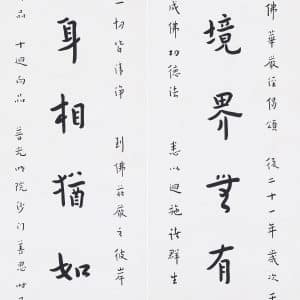 佛華嚴經偈頌 後二十一年歲次
境界無有
成佛功德法 悉以迴施諸群生
一切皆清淨 到佛莊嚴之彼岸
身相猶如
品 十迴向品 普光明院沙门善思時